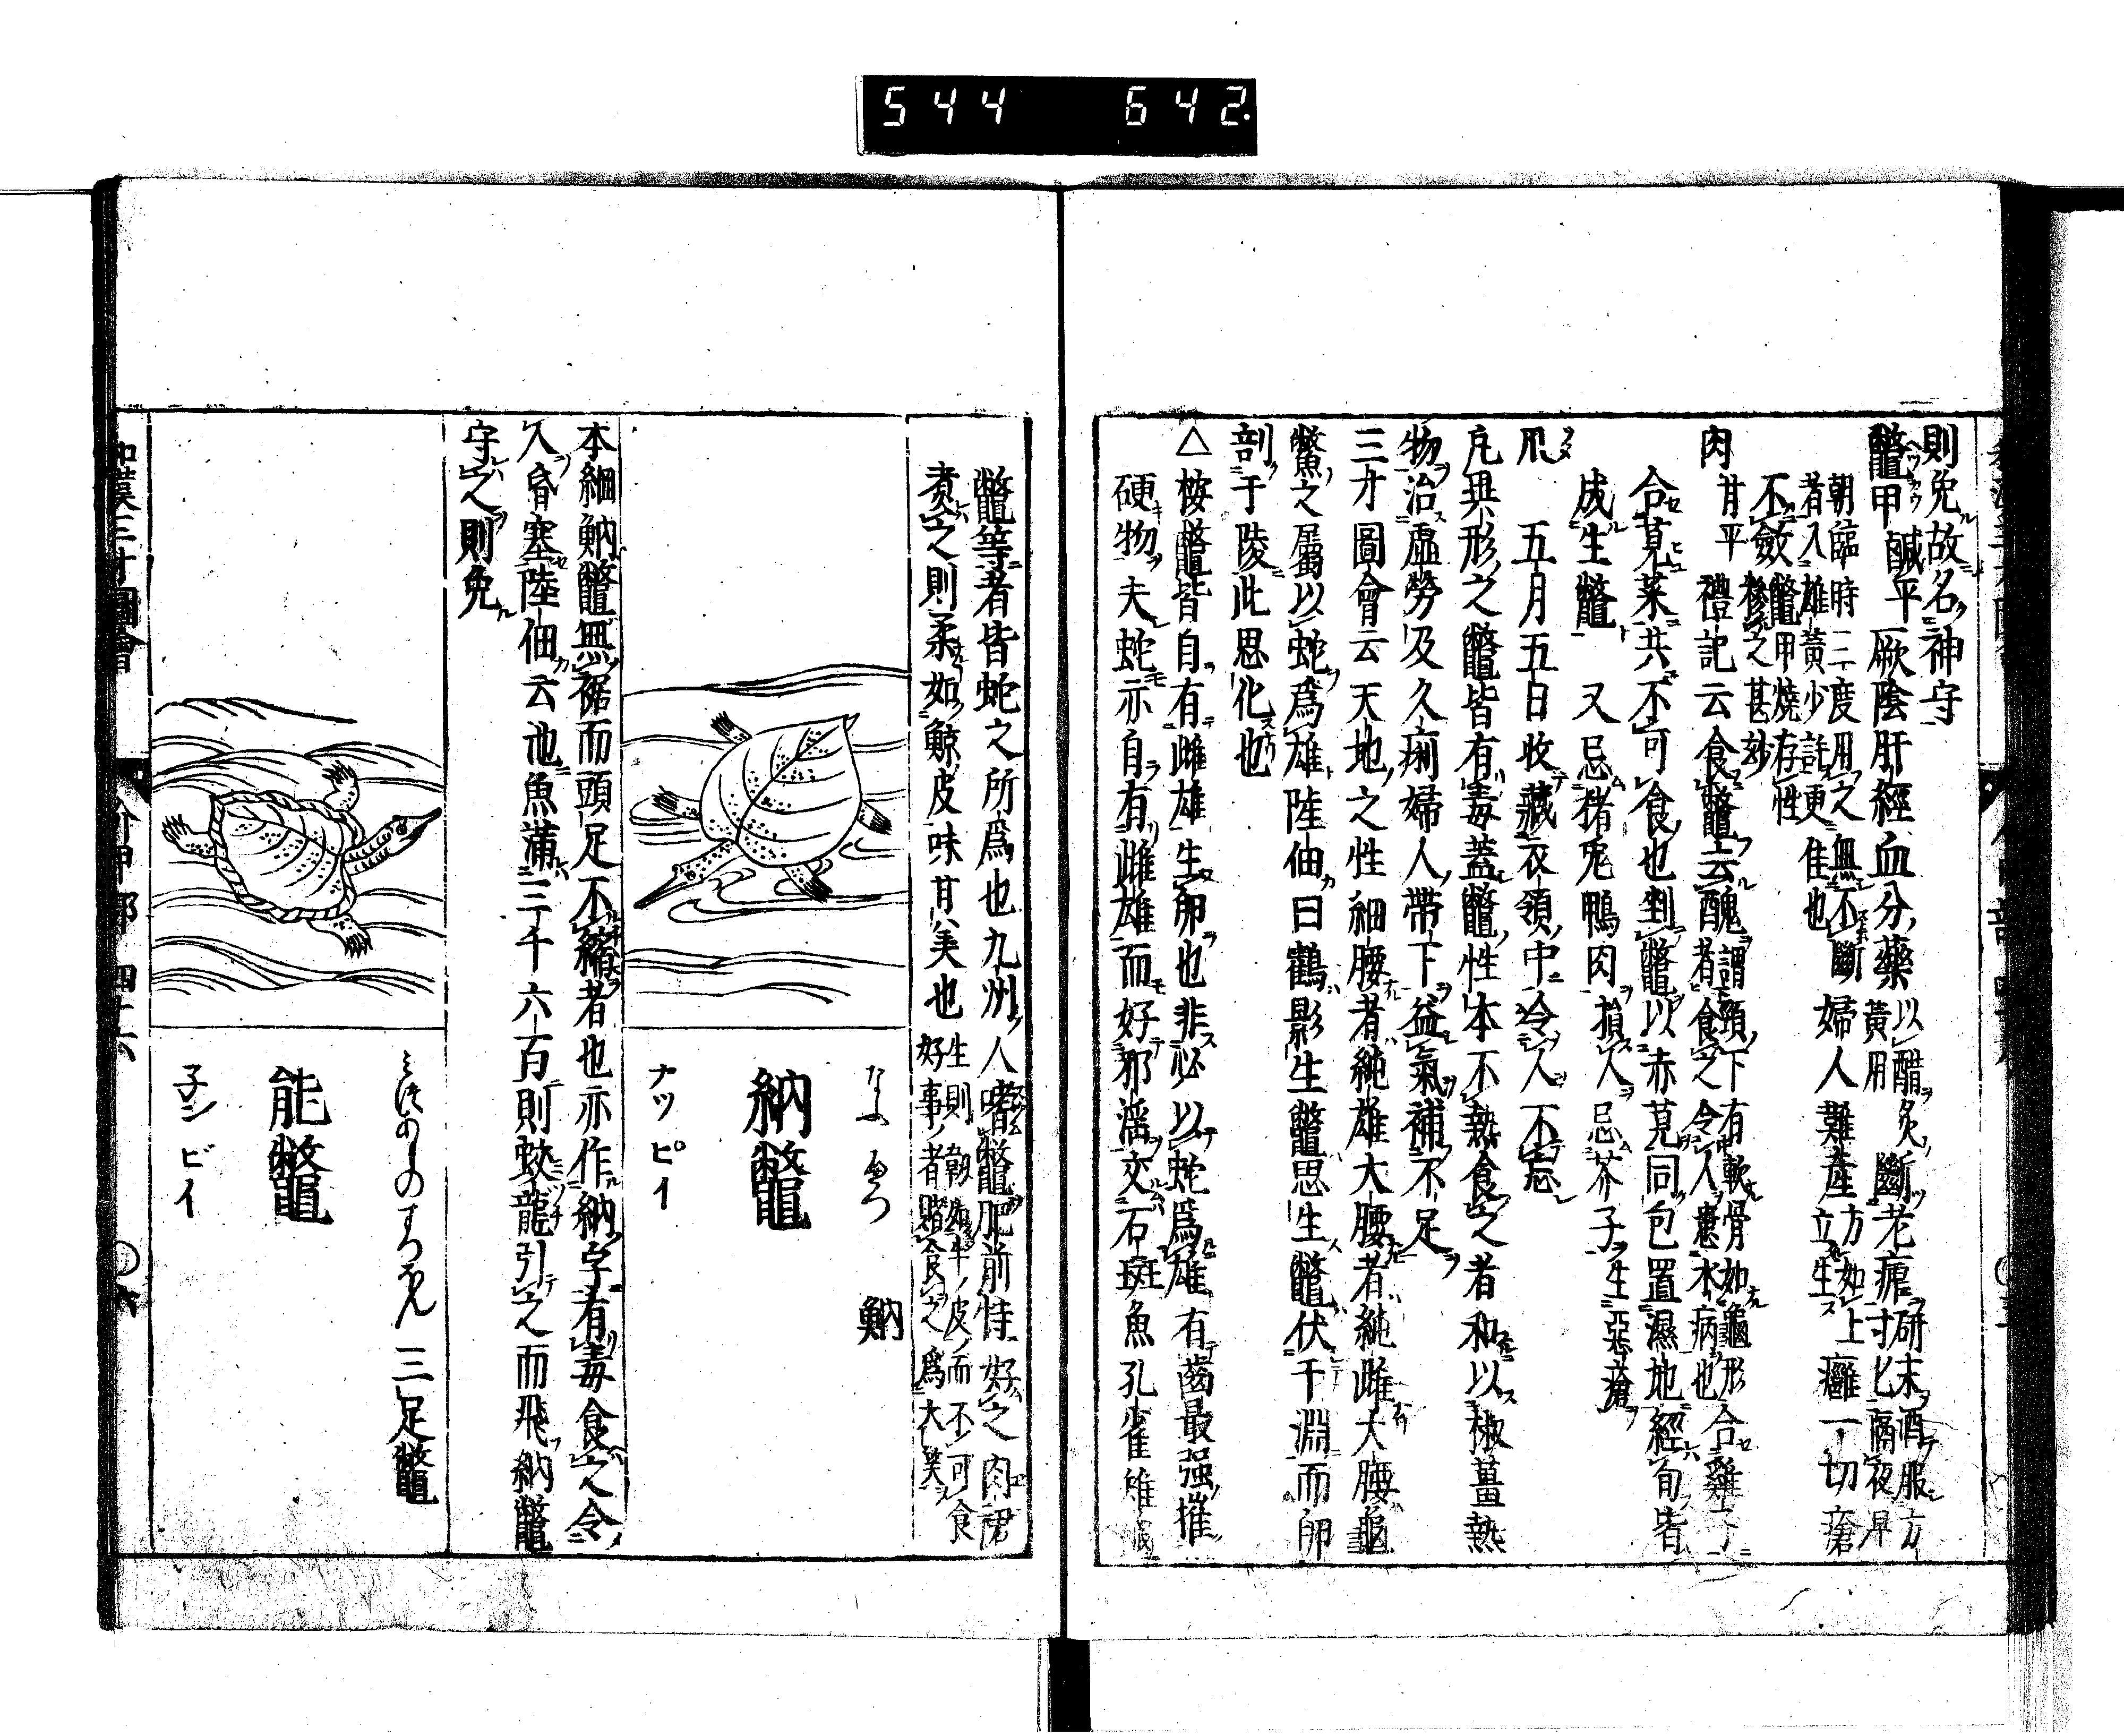 544 642.
則免故名神守
鼈甲 鹹平 厥陰肝經血分藥 以醋炙黃用 斷老瘧 研末酒服方寸匕隔夜早
朝臨時二度用之無不斷
者入雄黃少許更佳也 婦人難產 方如上立生 癰一切瘡
不斂 鼈甲燒存性摻之甚妙
肉 甘平 禮記云食鼈去醜 謂頸下有軟骨如龜形者食之令人患水病也 合雞子
合莧菜共不可食也剉鼈以赤莧同包置濕地經旬皆
成生鼈 又忌猪兎鴨肉 損人 忌芥子 生惡瘡
爪 五月五日收藏衣領中令人不忘
凡異形之鼈皆有毒蓋鼈性本不熱食之者和以椒薑熱
物治虛勞及久痢婦人帶下益氣補不足
三才圖會云天地之性細腰者純雄大腰者純雌大腰龜
鱉之屬以蛇爲雄陸佃曰鶴影生鼈思生鼈伏于淵而卵
剖于陵此思化也
△按龜鼈皆自有雌雄生卵也非必以蛇爲雄有齒最强摧
硬物夫蛇亦自有雌雄而好邪滛交石斑魚孔雀雉
鼈等者皆蛇之所爲也九州人嗜鼈肥前特好之肉裙
煑之則柔如鯨皮味甘美也 生則韌如牛ノ皮而不可食
好事ノ者賭食之爲大笑
納鼈 鮞
ナツピイ
本綱魶鼈無裙而頭足不縮者也亦作納字有毒食之令
人昏塞陸佃云池魚滿三千六百則蛟龍引之而飛納鼈
守之則免
三足鼈
能鼈
子ンビイ
和漢三才圖會 介甲部 四十六 〇六